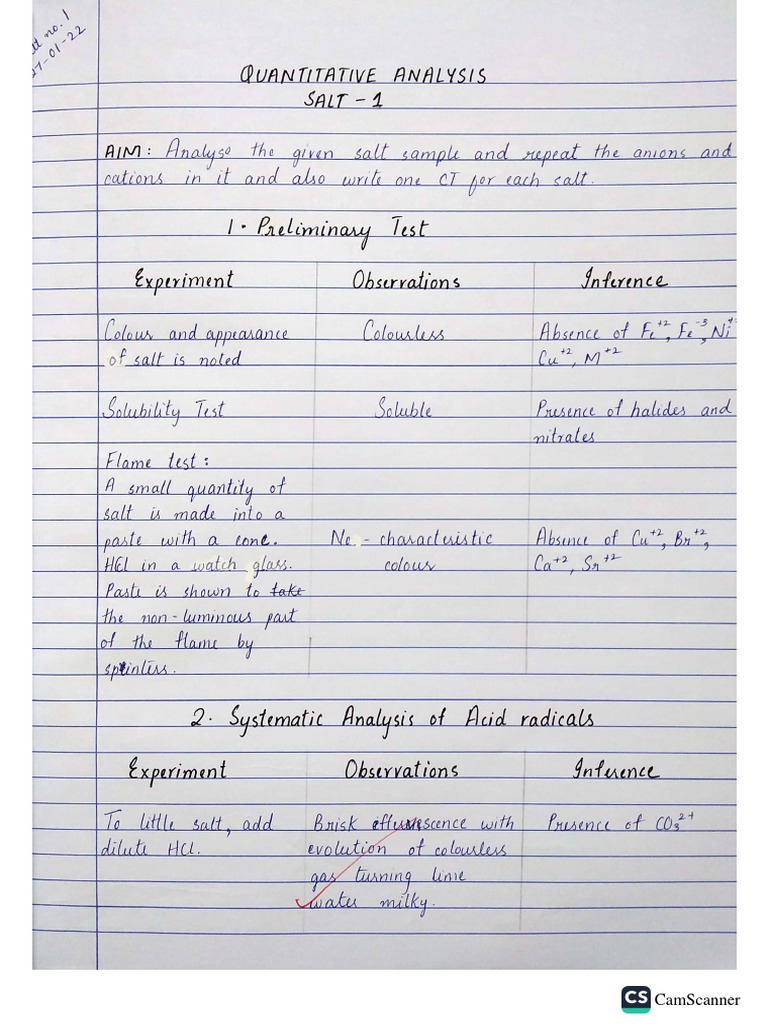 no. 1
-01-22
QUANTITATIVE ANALYSIS
SALT - 1
AIM: Analyse the given salt sample and repeat the anions and
cations in it and also write one CT for each salt.
1. Preliminary Test
Experiment Observations Inference
Colour and appearance Colourless Absence of Fe+2, Fe-3, Ni+
of salt is noted Cu+2, M+2
Solubility Test Soluble Presence of halides and
nitrates
Flame test:
A small quantity of
salt is made into a
paste with a conc. No - characteristic Absence of Cu+2, Br+2,
HCl in a watch glass. colour Ca+2, Sr+2
Paste is shown to take
the non-luminous part
of the flame by
splinters.
2. Systematic Analysis of Acid radicals
Experiment Observations Inference
To little salt, add Brisk effervescence with Presence of CO3 2+
dilute HCl. evolution of colourless
gas turning lime
water milky.
CS CamScanner